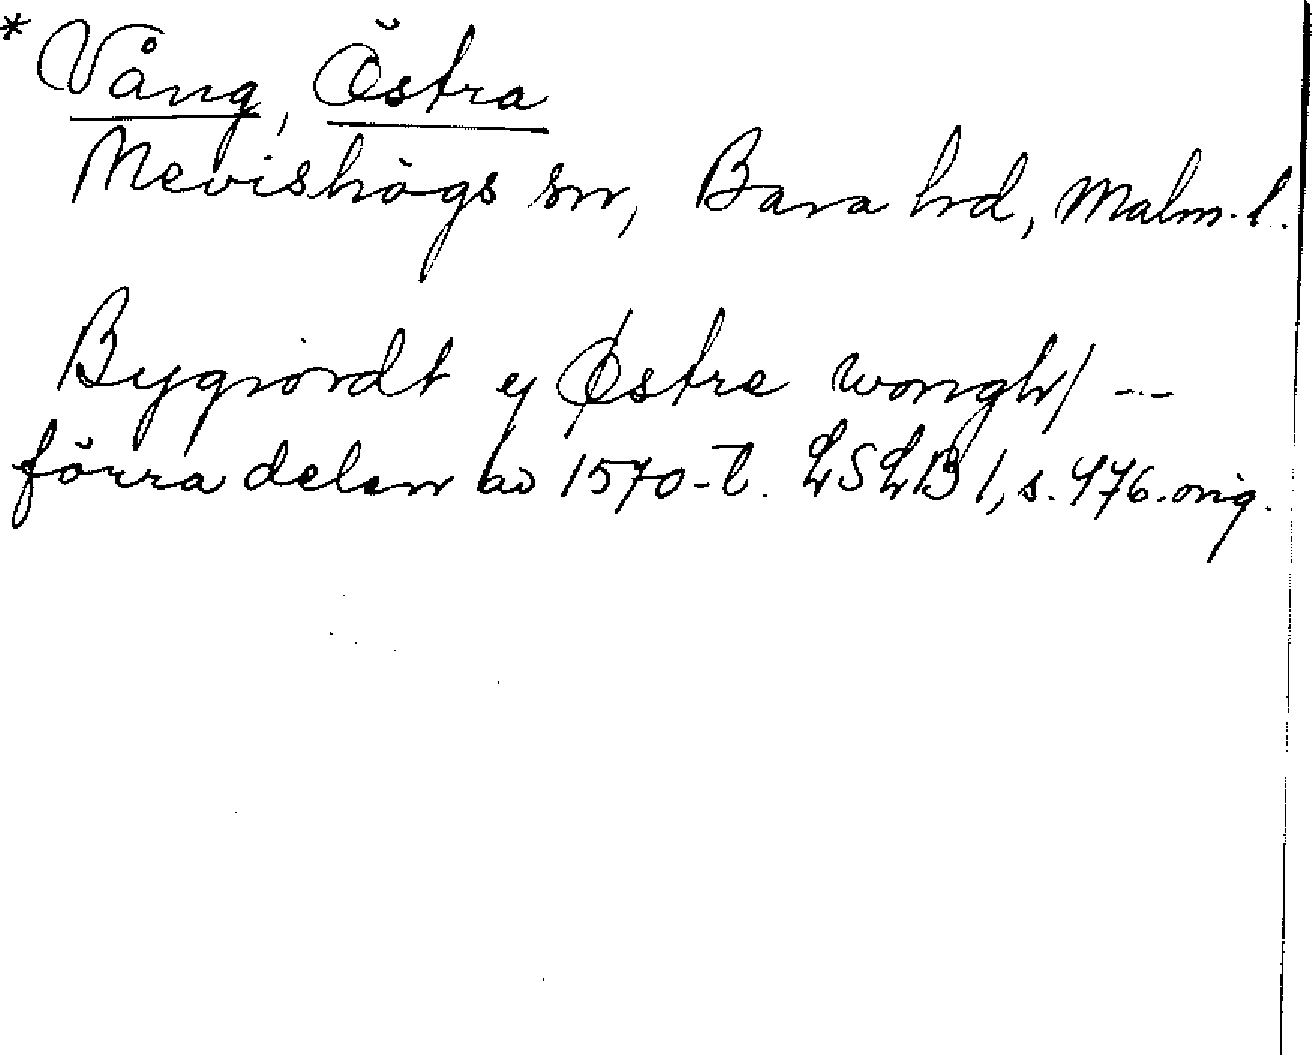 * Vång, Östra
Mevishögs sn, Bara hd, Malm. l.
Bygiordt ej Østre wongh/ --
förra delen av 1570-t. LSLB 1, s. 476. orig.